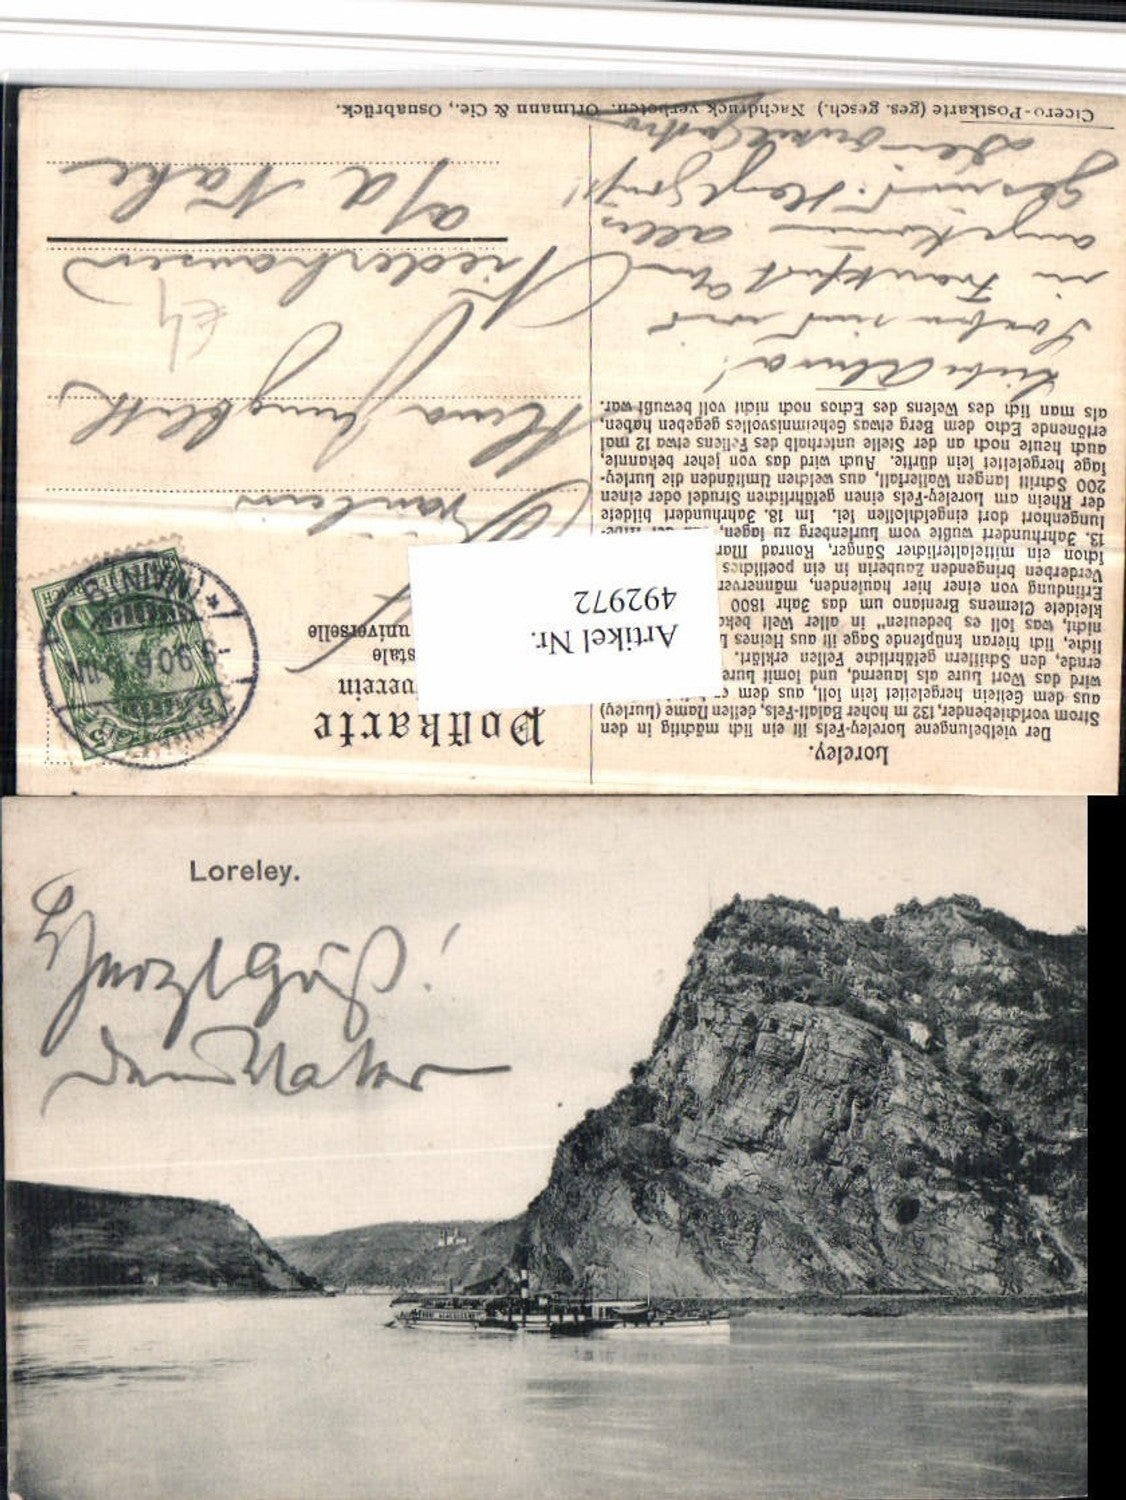 Loreley.
Der vielbesungene Loreley-Fels ist ein sich mächtig in den
Strom vorschiebender, 132 m hoher Basalt-Fels, dessen Name (Lurley)
aus dem Keltischen hergeleitet sein soll, aus dem
wird das Wort Lure als lauernd, und somit Lure
lernde, den Schiffern gefährliche Felsen erklärt.
liche, sich hieran knüpfende Sage ist aus Heines
nicht, was soll es bedeuten" in aller Welt
kleidete Clemens Brentano um das Jahr 1800
Erfindung von einer hier hausenden, männerver
Verderben bringenden Zauberin in ein poetisches
schon ein mittelalterlicher Sänger, Konrad Mar
13. Jahrhundert wußte vom Lurlenberg zu sagen,
lungenhort dort eingeschlossen sei. Im 18. Jahrhundert bildete
der Rhein am Loreley-Fels einen gefährlichen Strudel oder einen
200 Schritt langen Wasserfall, aus welchen Umständen die Lurley-
sage hergeleitet sein dürfte. Auch wird das von jeher bekannte,
auch heute noch an der Stelle unterhalb des Felsens etwa 12 mal
ertönende Echo dem Berg etwas Geheimnisvolles gegeben haben,
als man sich des Wesens des Echos noch nicht voll bewußt war.
Liebe Alwa!
Soeben sind wir
in Frankfurt a/m
angekommen alles
gesund. Herzl. Gruß!
Postkarte
verein
stale
universelle
Artikel Nr.
492972
(MAIN)
Fräulein
Alwa Jungbluth
Niederhausen
a/d Nahe
Cicero-Postkarte (ges. gesch.) Nachdruck verboten. Ortmann & Cie., Osnabrück.
Loreley.
Herzl Gruß!
Dein Vater